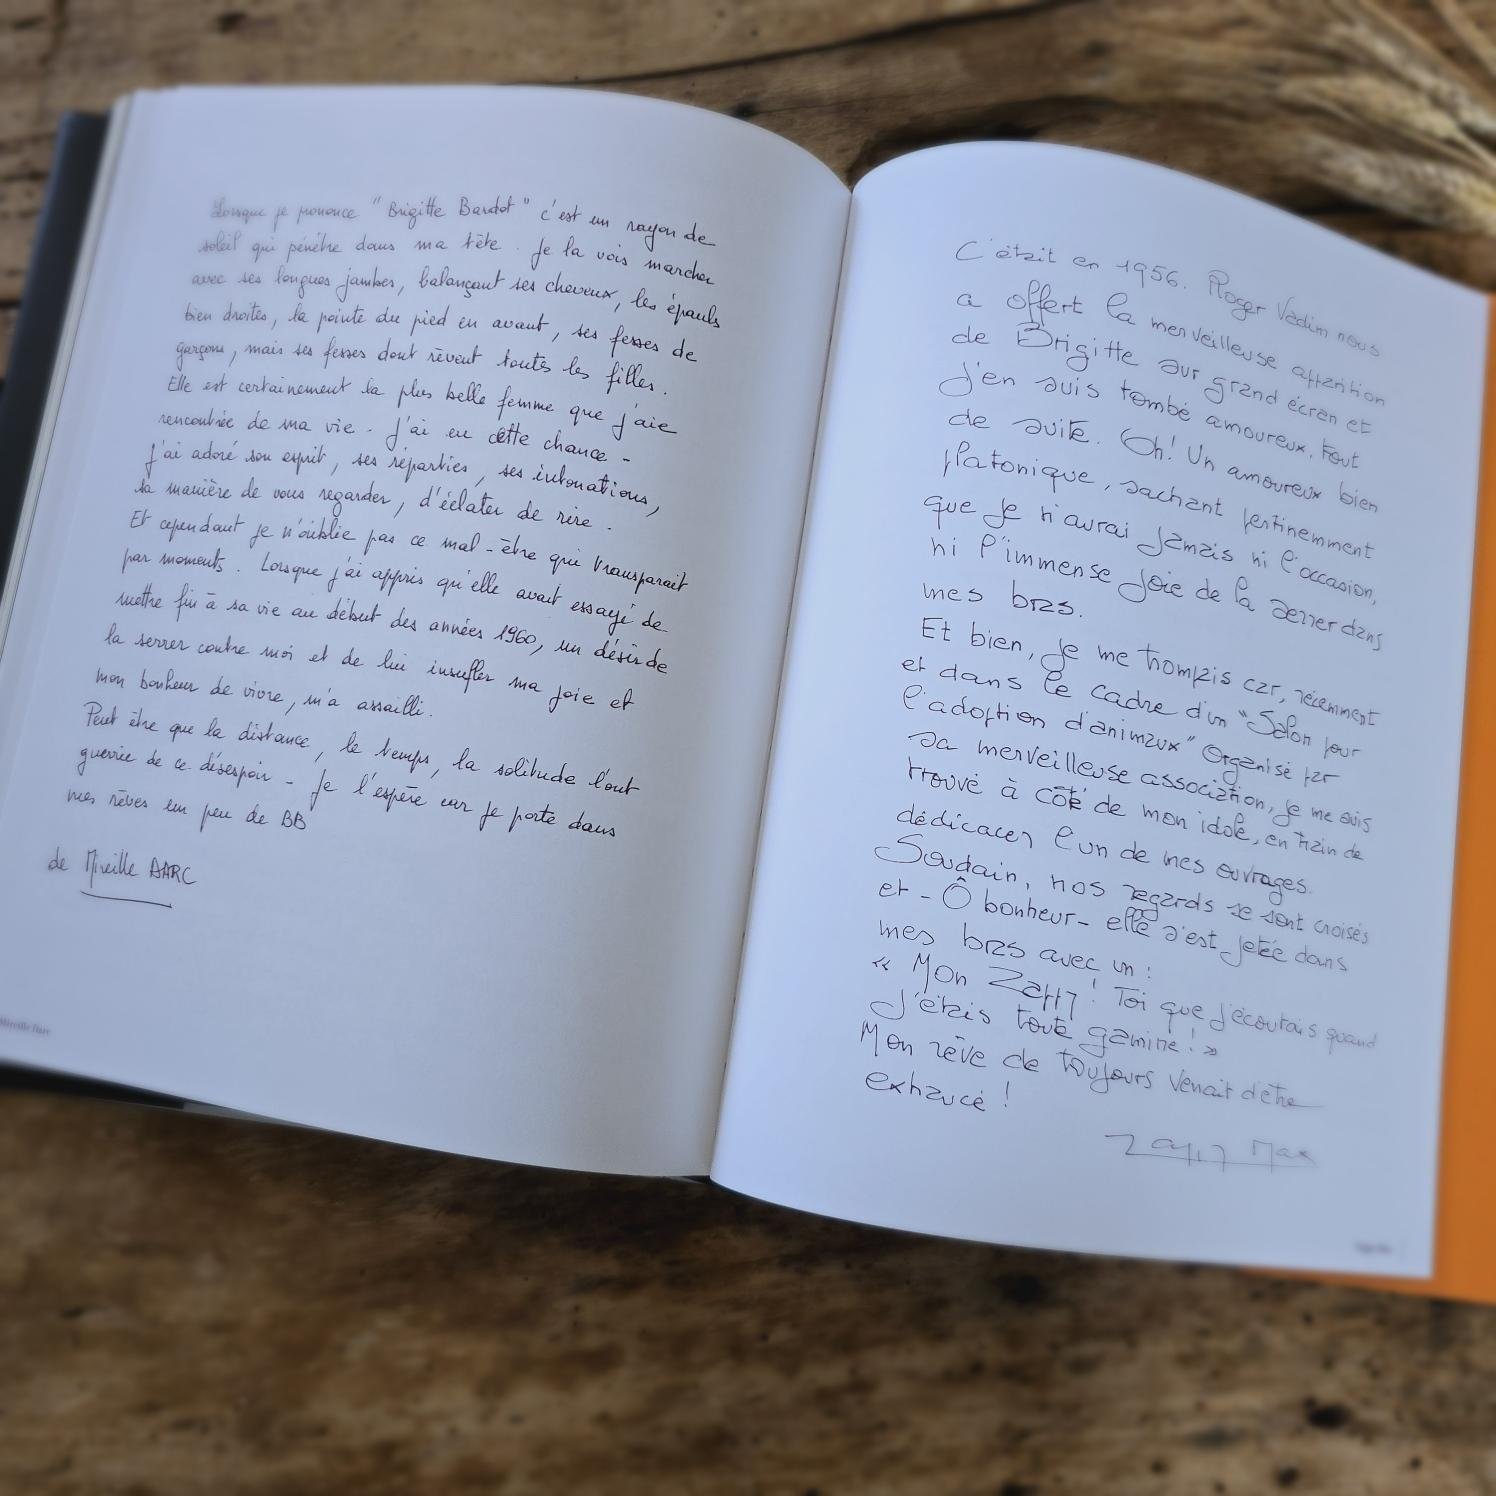 Lorsque je prononce "Brigitte Bardot" c'est un rayon de
soleil qui pénètre dans ma tête. Je la vois marcher
avec ses longues jambes, balançant ses cheveux, les épaules
bien droites, la pointe du pied en avant, ses fesses de
garçons, mais ses fesses dont rêvent toutes les filles.
Elle est certainement la plus belle femme que j'aie
rencontrée de ma vie. J'ai eu cette chance -
J'ai adoré son esprit, ses réparties, ses intonations,
sa manière de vous regarder, d'éclater de rire.
Et cependant je n'oublie pas ce mal-être qui transparait
par moments. Lorsque j'ai appris qu'elle avait essayé de
mettre fin à sa vie au début des années 1960, un désir de
la serrer contre moi et de lui insuffler ma joie et
mon bonheur de vivre, m'a assailli.
Peut être que la distance, le temps, la solitude l'ont
guérrie de ce désespoir - Je l'espère car je porte dans
mes rêves un peu de BB
de Mireille DARC
Mireille Darc
C'était en 1956. Roger Vadim nous
a offert la merveilleuse apparition
de Brigitte sur grand écran et
j'en suis tombé amoureux, tout
de suite. Oh! Un amoureux bien
platonique, sachant pertinemment
que je n'aurai jamais ni l'occasion,
ni l'immense joie de la serrer dans
mes bras.
Et bien, je me trompais car, récemment
et dans le cadre d'un "Salon pour
l'adoption d'animaux" organisé par
sa merveilleuse association, je me suis
trouvé à côté de mon idole, en train de
dédicacer l'un de mes ouvrages.
Soudain, nos regards se sont croisés
et - Ô bonheur - elle s'est jetée dans
mes bras avec un :
« Mon Zappy ! Toi que j'écoutais quand
j'étais toute gamine ! »
Mon rêve de toujours venait d'être
exhaucé !
Zappy Max